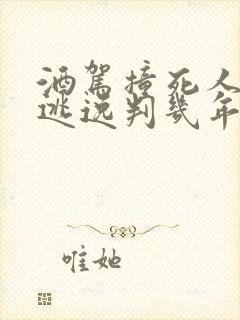 酒駕撞死人
逃逸判幾年
唯她